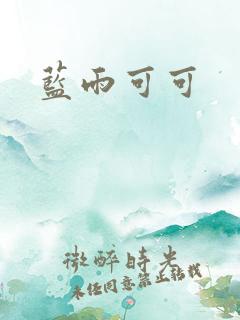 藍雨可可
微醉時光
未經同意禁止轉載